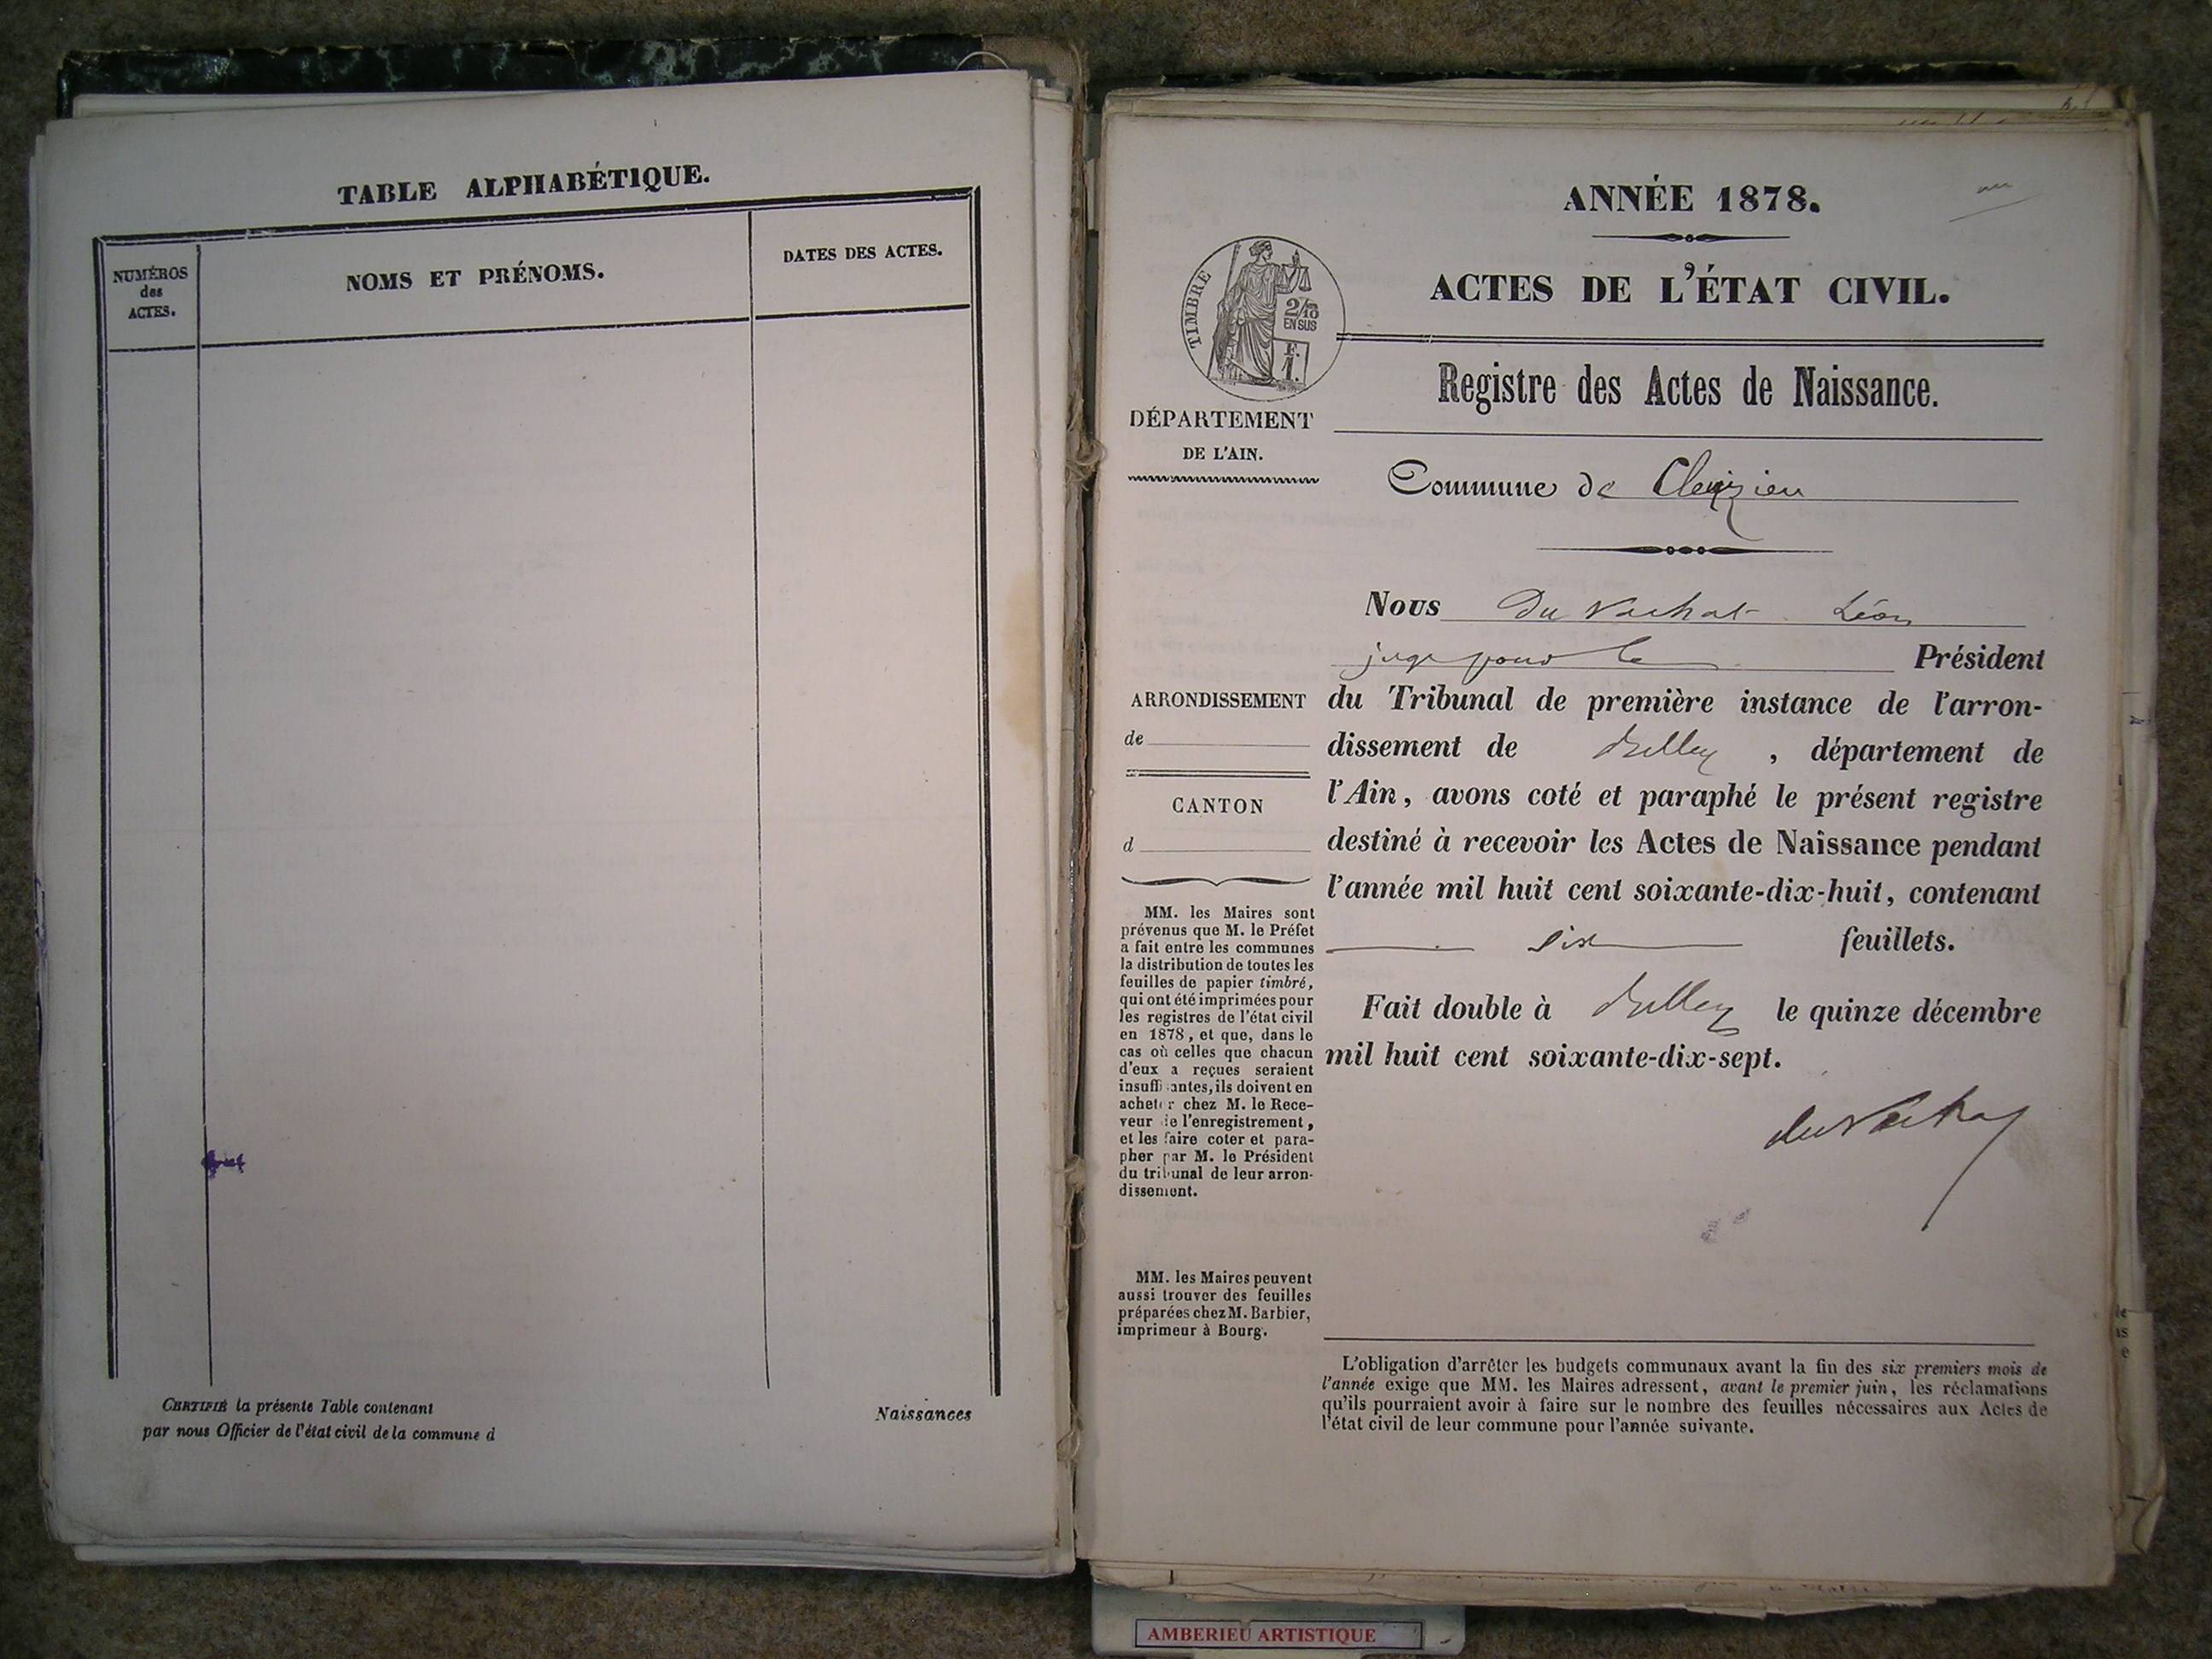 TABLE ALPHABÉTIQUE.
NUMÉROS
des
ACTES.
NOMS ET PRÉNOMS.
DATES DES ACTES.
CERTIFIÉ la présente Table contenant
Naissances
par nous Officier de l'état civil de la commune d
ANNÉE 1878.
ACTES DE L'ÉTAT CIVIL.
TIMBRE
2/10
EN SUS
F.
1.
Registre des Actes de Naissance.
DÉPARTEMENT
DE L'AIN.
Commune de Cleyzieu
Nous Du Vachat Léon
juge pour le Président
du Tribunal de première instance de l'arron-
dissement de Belley, département de
l'Ain, avons coté et paraphé le présent registre
destiné à recevoir les Actes de Naissance pendant
l'année mil huit cent soixante-dix-huit, contenant
six feuillets.
Fait double à Belley le quinze décembre
mil huit cent soixante-dix-sept.
du Vachat
ARRONDISSEMENT
de
CANTON
d
MM. les Maires sont
prévenus que M. le Préfet
a fait entre les communes
la distribution de toutes les
feuilles de papier timbré,
qui ont été imprimées pour
les registres de l'état civil
en 1878, et que, dans le
cas où celles que chacun
d'eux a reçues seraient
insuffisantes, ils doivent en
acheter chez M. le Rece-
veur de l'enregistrement,
et les faire coter et para-
pher par M. le Président
du tribunal de leur arron-
dissement.
MM. les Maires peuvent
aussi trouver des feuilles
préparées chez M. Barbier,
imprimeur à Bourg.
L'obligation d'arrêter les budgets communaux avant la fin des six premiers mois de
l'année exige que MM. les Maires adressent, avant le premier juin, les réclamations
qu'ils pourraient avoir à faire sur le nombre des feuilles nécessaires aux Actes de
l'état civil de leur commune pour l'année suivante.
AMBERIEU ARTISTIQUE